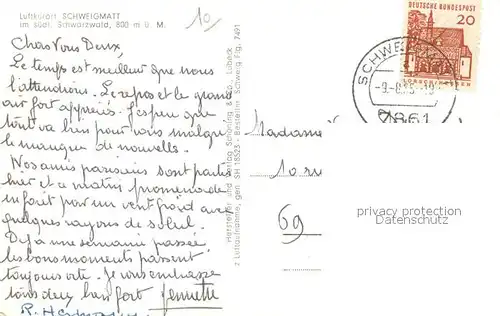 Luftkurort SCHWEIGMATT
im südl. Schwarzwald, 800 m ü. M.
10
Chers Vous Deux,
Le temps est meilleur que nous
l'attendions. Le repos et le grand
air fort appréciés. J'espère que
tout va bien pour vous malgré
le manque de nouvelles.
Nos amis parisiens sont partis
hier et ce matin promenade
en forêt par un vent froid avec
quelques rayons de soleil.
Déjà une semaine passée
les bons moments passent
toujours vite. Je vous embrasse
tous deux bien fort Jennette
Hersteller und Verlag Schöning & Co., Lübeck
Luftaufnahme, gen. SH
DEUTSCHE BUNDESPOST
20
LORSCH/HESSEN
7861
Madame
69
privacy protection
Datenschutz